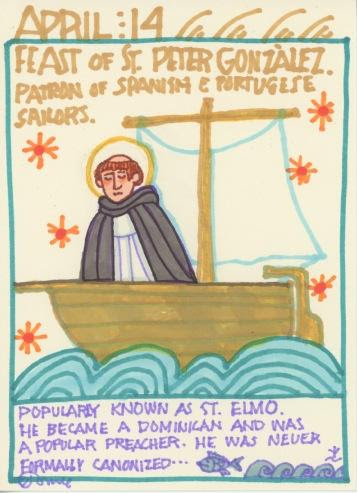 APRIL:14
FEAST OF ST. PETER GONZÀLEZ.
PATRON OF SPANISH & PORTUGESE
SAILORS.
POPULARLY KNOWN AS ST. ELMO.
HE BECAME A DOMINICAN AND WAS
A POPULAR PREACHER. HE WAS NEVER
FORMALLY CANONIZED...